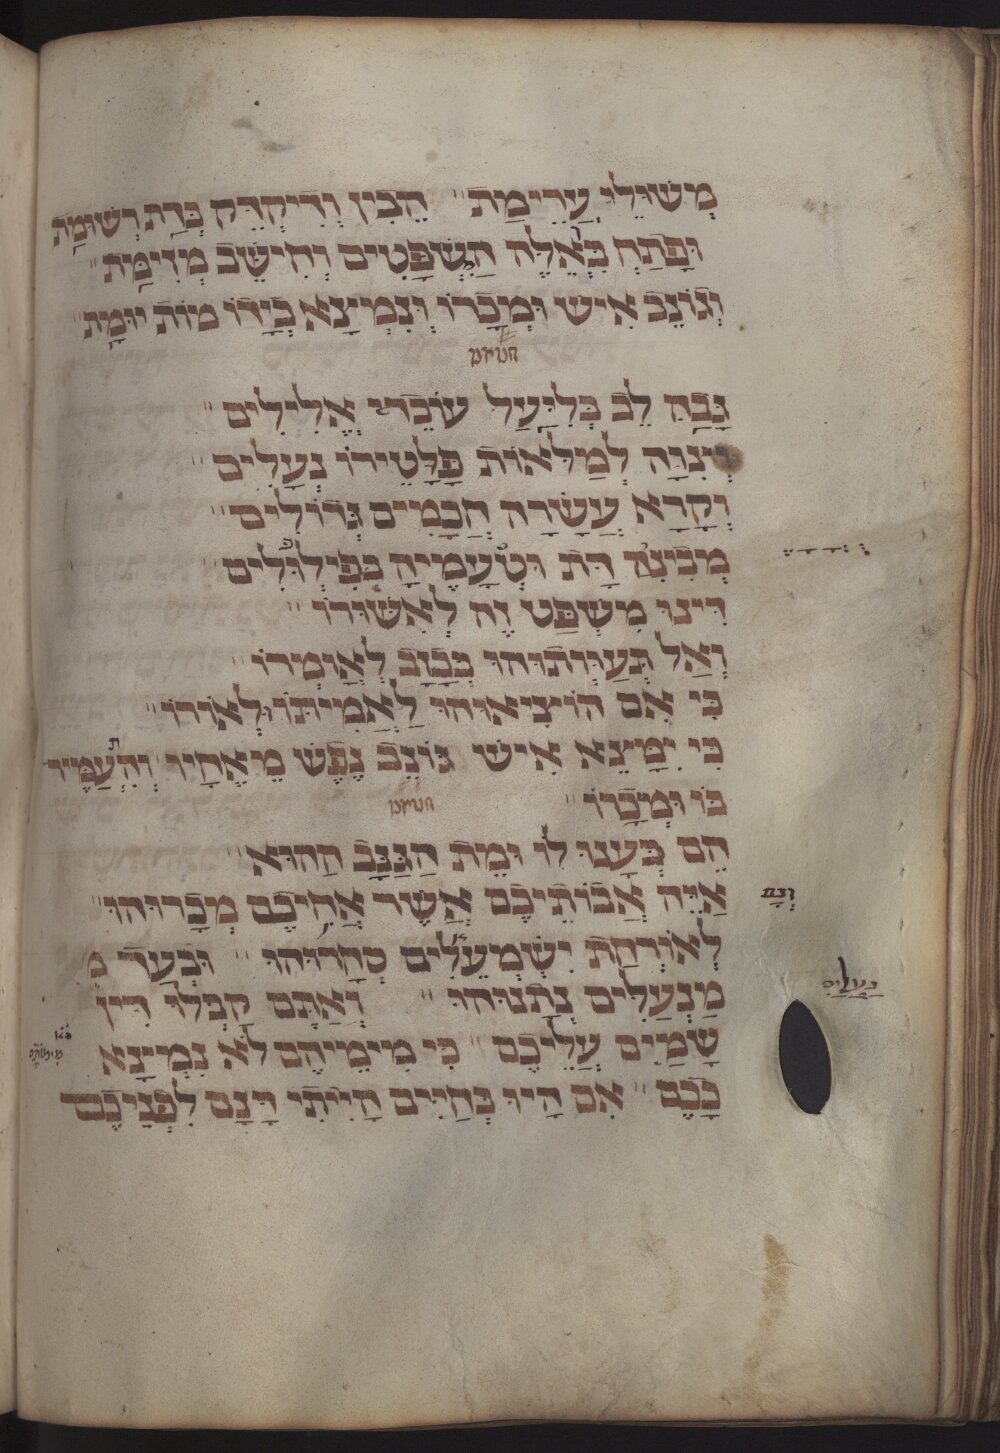 מְשׁוּלֵּי עֲרֵימַת״ הֵבִין וְדִיקְדֵּק כְּדָת רְשׁוּמָת
וּפָתַח בְּאֵלֶּה הַמִּשְׁפָּטִים וְחִישֵּׁב מְזִימָּת״
וְגוֹנֵב אִישׁ וּמְכָרוֹ וְנִמְצָא בְיָדוֹ מוֹת יוּמָת״
חטאנו
גָּבַהּ לֵב בְּלִיַּעַל עוֹבְדֵי אֱלִילִים״
וְצִוָּה לְמַלֹּאות פַּלָּטֵירוֹ נְעָלִים״
וְקָרָא עֲשָׂרָה חֲכָמִים גְּדוֹלִים״
מְבִינֵי דָת וּטְעָמֶיהָ בְּפִילְפּוּלִים״
דִּינוּ מִשְׁפָּט זֶה לְאִשּׁוּרוֹ״
וְאַל תְּעַוְּתוּהוּ בְּכָזָב לְאָומְרוֹ״
כִּי אִם הוֹצִיאוּהוּ לַאֲמִיתּוֹ וּלְאוֹרוֹ״
כִּי יִמָּצֵא אִישׁ גּוֹנֵב נֶפֶשׁ מֵאֶחָיו וְהִתְעַמֶּר
בּוֹ וּמְכָרוֹ״ חטאנו
הֵם כְּעָנוּ לוֹ וּמֵת הַגַּנָּב הַהוּא״
אַיֵּה אֲבוֹתֵיכֶם אֲשֶׁר אֲחִיכֶם מְכָרוּהוּ״
וגם
לְאוֹרְחַת יִשְׁמְעֵאלִים סְחָרוּהוּ״ וּבְעַד
נעלים
מִנְעָלִים נְתָנוּהוּ״ וְאַתֶּם קַבְּלוּ דִּין
שָׁמַיִם עֲלֵיכֶם״ כִּי מִימֵיהֶם לֹא נִמְצָא
בָּכֶם״ אִם הָיוּ בְּחַיִּים הָיִיתִי דָנָם לִפְנֵיכֶם